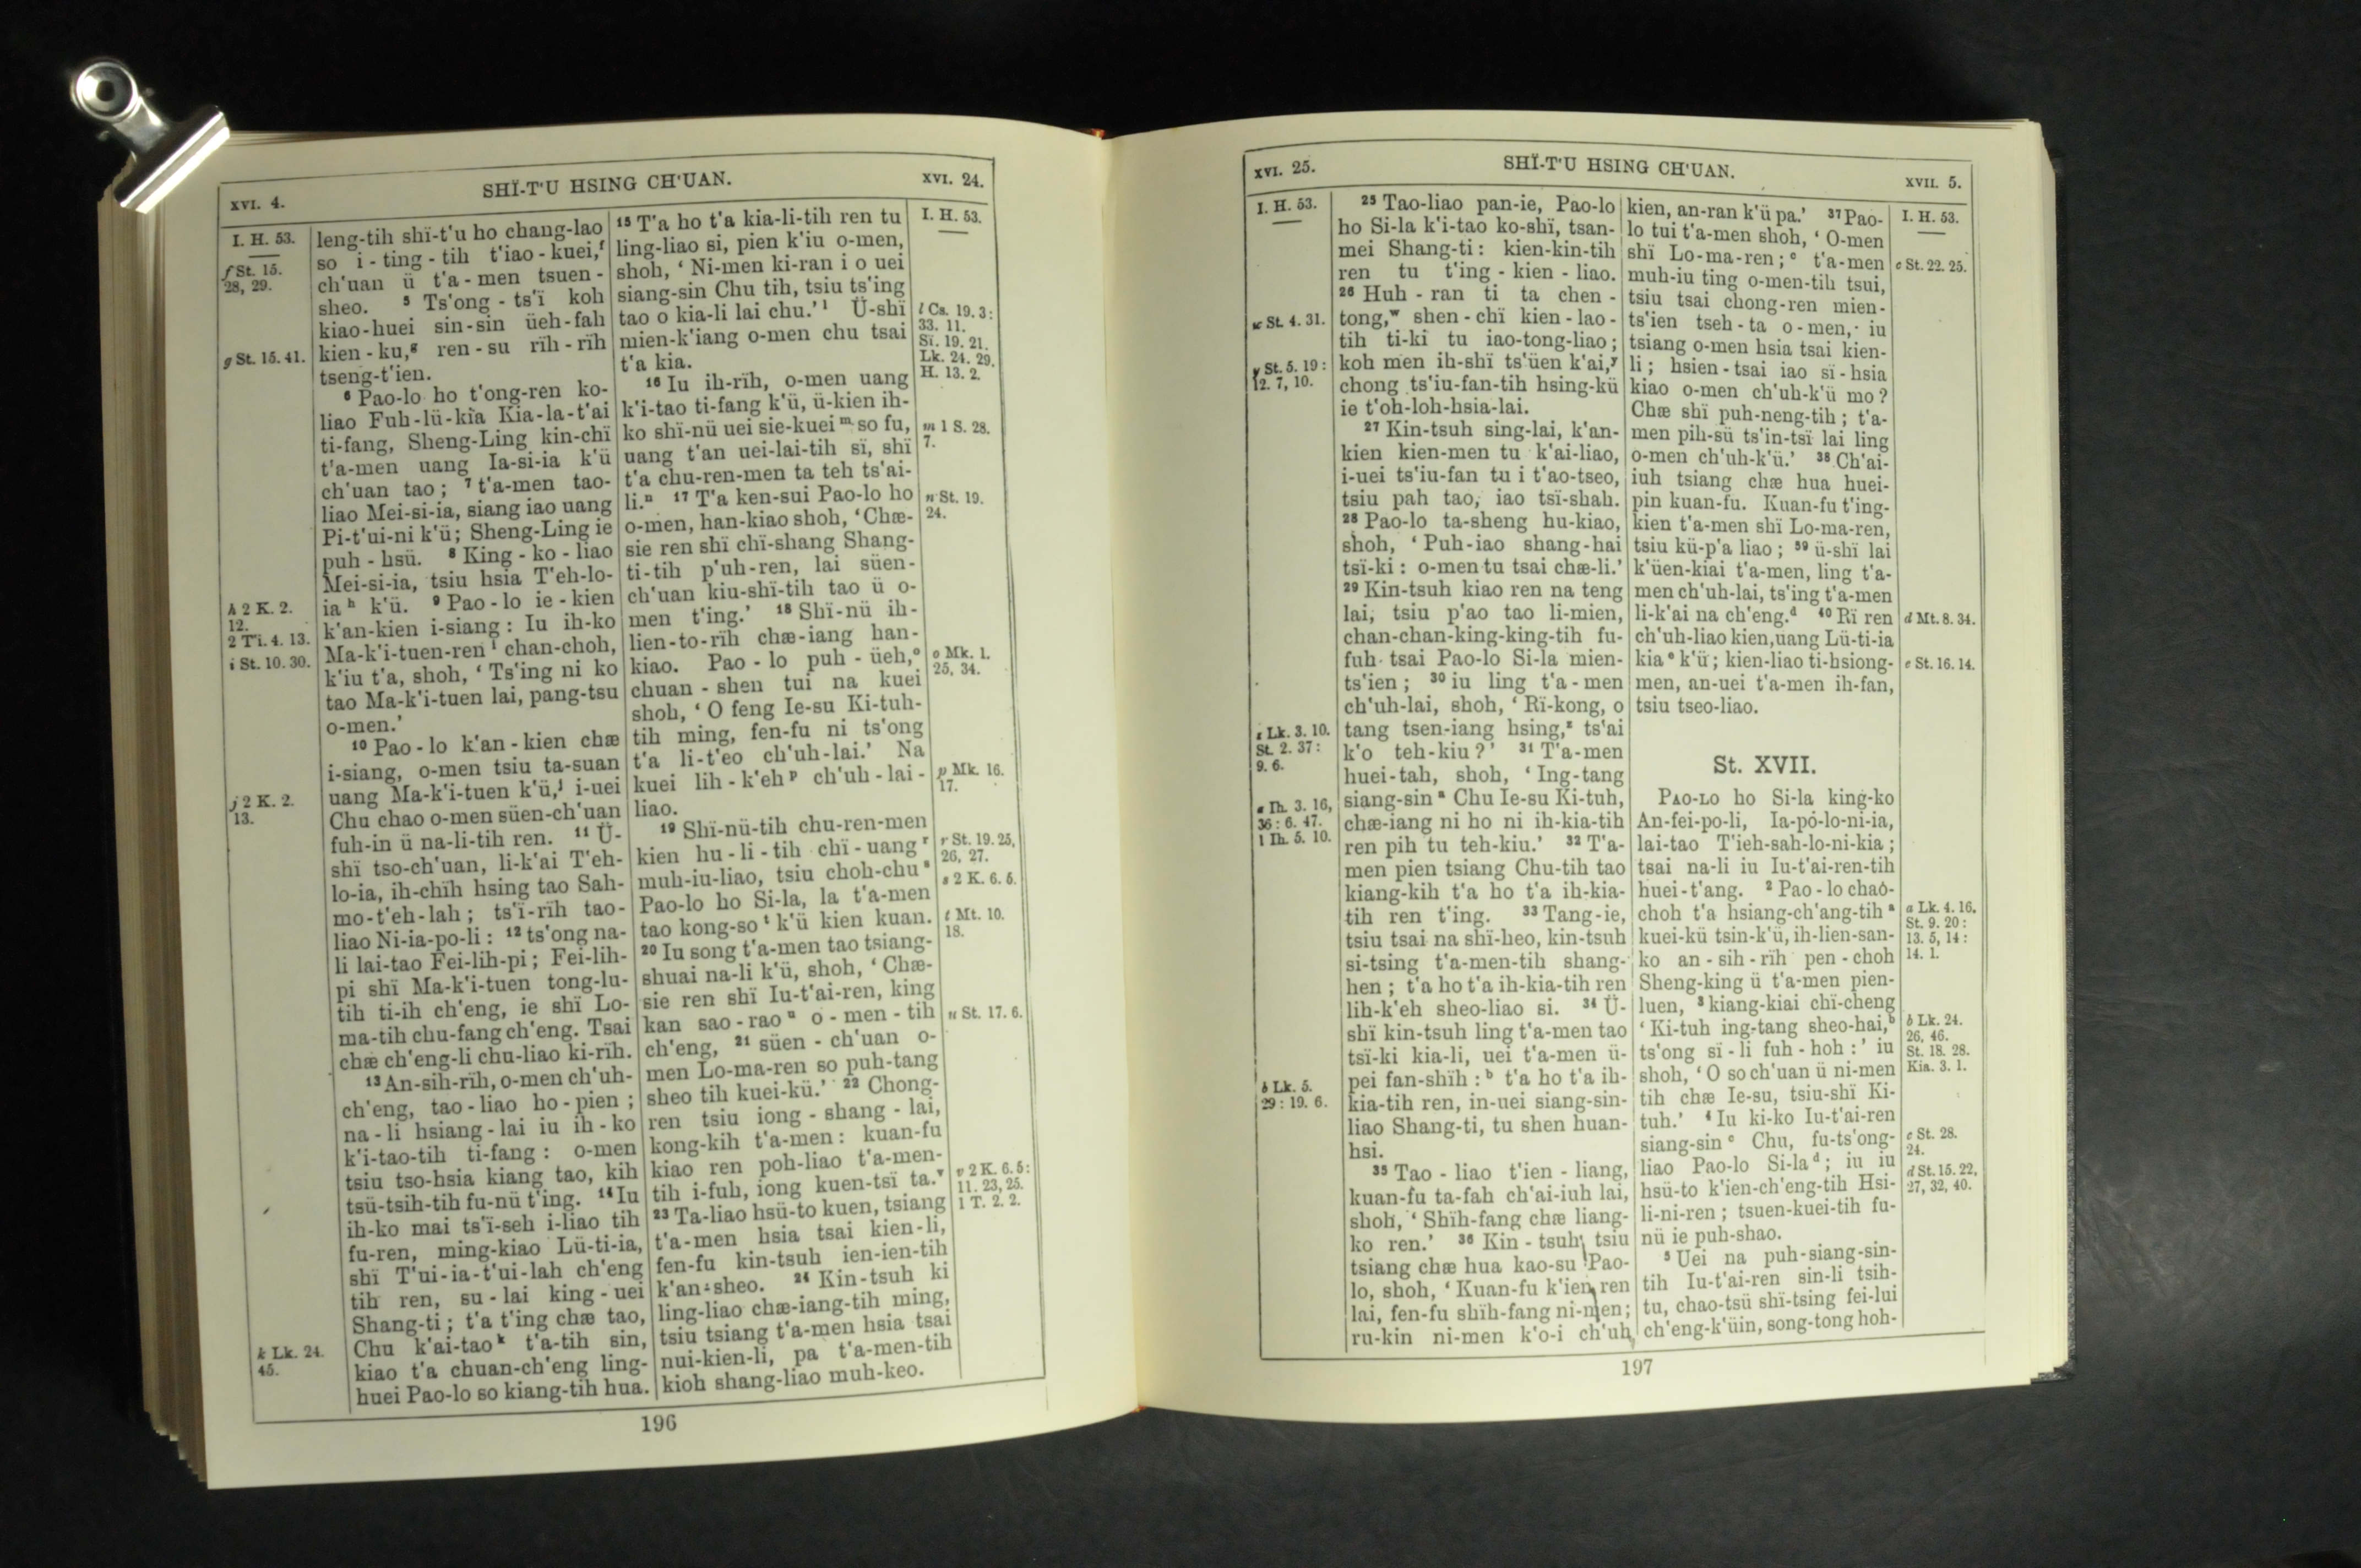 XVI. 4.
SHÏ-T'U HSING CH'UAN.
XVI. 24.
I. H. 53.
f St. 15.
28, 29.
g St. 15. 41.
h 2 K. 2.
12.
2 Ti. 4. 13.
i St. 10. 30.
j 2 K. 2.
13.
k Lk. 24.
45.
leng-tih shï-t'u ho chang-lao
so i-ting-tih t'iao-kuei,f
ch'uan ü t'a-men tsuen-
sheo. 5 Ts'ong-ts'ï koh
kiao-huei sin-sin üeh-fah
kien-ku,g ren-su rïh-rïh
tseng-t'ien.
6 Pao-lo ho t'ong-ren ko-
liao Fuh-lü-kia Kia-la-t'ai
ti-fang, Sheng-Ling kin-chï
t'a-men uang Ia-si-ia k'ü
ch'uan tao; 7 t'a-men tao-
liao Mei-si-ia, siang iao uang
Pi-t'ui-ni k'ü; Sheng-Ling ie
puh-hsü. 8 King-ko-liao
Mei-si-ia, tsiu hsia T'eh-lo-
ia h k'ü. 9 Pao-lo ie-kien
k'an-kien i-siang: Iu ih-ko
Ma-k'i-tuen-ren i chan-choh,
k'iu t'a, shoh, ‘Ts'ing ni ko
tao Ma-k'i-tuen lai, pang-tsu
o-men.’
10 Pao-lo k'an-kien chæ
i-siang, o-men tsiu ta-suan
uang Ma-k'i-tuen k'ü,j i-uei
Chu chao o-men süen-ch'uan
fuh-in ü na-li-tih ren. 11 Ü-
shï tso-ch'uan, li-k'ai T'eh-
lo-ia, ih-chïh hsing tao Sah-
mo-t'eh-lah; ts'ï-rïh tao-
liao Ni-ia-po-li: 12 ts'ong na-
li lai-tao Fei-lih-pi; Fei-lih-
pi shï Ma-k'i-tuen tong-lu-
tih ti-ih ch'eng, ie shï Lo-
ma-tih chu-fang ch'eng. Tsai
chæ ch'eng-li chu-liao ki-rïh.
13 An-sih-rïh, o-men ch'uh-
ch'eng, tao-liao ho-pien;
na-li hsiang-lai iu ih-ko
k'i-tao-tih ti-fang: o-men
tsiu tso-hsia kiang tao, kih
tsü-tsih-tih fu-nü t'ing. 14 Iu
ih-ko mai ts'ï-seh i-liao tih
fu-ren, ming-kiao Lü-ti-ia,
shï T'ui-ia-t'ui-lah ch'eng
tih ren, su-lai king-uei
Shang-ti; t'a t'ing chæ tao,
Chu k'ai-tao k t'a-tih sin,
kiao t'a chuan-ch'eng ling-
huei Pao-lo so kiang-tih hua.
15 T'a ho t'a kia-li-tih ren tu
ling-liao si, pien k'iu o-men,
shoh, ‘Ni-men ki-ran i o uei
siang-sin Chu tih, tsiu ts'ing
tao o kia-li lai chu.’ l Ü-shï
mien-k'iang o-men chu tsai
t'a kia.
16 Iu ih-rïh, o-men uang
k'i-tao ti-fang k'ü, ü-kien ih-
ko shï-nü uei sie-kuei m so fu,
uang t'an uei-lai-tih sï, shï
t'a chu-ren-men ta teh ts'ai-
li.n 17 T'a ken-sui Pao-lo ho
o-men, han-kiao shoh, ‘Chæ-
sie ren shï chï-shang Shang-
ti-tih p'uh-ren, lai süen-
ch'uan kiu-shï-tih tao ü o-
men t'ing.’ 18 Shï-nü ih-
lien-to-rïh chæ-iang han-
kiao. Pao-lo puh-üeh,o
chuan-shen tui na kuei
shoh, ‘O feng Ie-su Ki-tuh-
tih ming, fen-fu ni ts'ong
t'a li-t'eo ch'uh-lai.’ Na
kuei lih-k'eh p ch'uh-lai-
liao.
19 Shï-nü-tih chu-ren-men
kien hu-li-tih chï-uang r
muh-iu-liao, tsiu choh-chu s
Pao-lo ho Si-la, la t'a-men
tao kong-so t k'ü kien kuan.
20 Iu song t'a-men tao tsiang-
shuai na-li k'ü, shoh, ‘Chæ-
sie ren shï Iu-t'ai-ren, king
kan sao-rao u o-men-tih
ch'eng, 21 süen-ch'uan o-
men Lo-ma-ren so puh-tang
sheo tih kuei-kü.’ 22 Chong-
ren tsiu iong-shang-lai,
kong-kih t'a-men: kuan-fu
kiao ren poh-liao t'a-men-
tih i-fuh, iong kuen-tsï ta.v
23 Ta-liao hsü-to kuen, tsiang
t'a-men hsia tsai kien-li,
fen-fu kin-tsuh ien-ien-tih
k'an-sheo. 24 Kin-tsuh ki
ling-liao chæ-iang-tih ming,
tsiu tsiang t'a-men hsia tsai
nui-kien-li, pa t'a-men-tih
kioh shang-liao muh-keo.
I. H. 53.
l Cs. 19. 3:
33. 11.
Sï. 19. 21.
Lk. 24. 29.
H. 13. 2.
m 1 S. 28.
7.
n St. 19.
24.
o Mk. 1.
25, 34.
p Mk. 16.
17.
r St. 19. 25,
26, 27.
s 2 K. 6. 5.
t Mt. 10.
18.
u St. 17. 6.
v 2 K. 6. 5:
11. 23, 25.
1 T. 2. 2.
196
XVI. 25.
SHÏ-T'U HSING CH'UAN.
XVII. 5.
I. H. 53.
w St. 4. 31.
y St. 5. 19:
12. 7, 10.
z Lk. 3. 10.
St. 2. 37:
9. 6.
a Ih. 3. 16,
36: 6. 47.
1 Ih. 5. 10.
b Lk. 5.
29: 19. 6.
25 Tao-liao pan-ie, Pao-lo
ho Si-la k'i-tao ko-shï, tsan-
mei Shang-ti: kien-kin-tih
ren tu t'ing-kien-liao.
26 Huh-ran ti ta chen-
tong,w shen-chï kien-lao-
tih ti-ki tu iao-tong-liao;
koh men ih-shï ts'üen k'ai,y
chong ts'iu-fan-tih hsing-kü
ie t'oh-loh-hsia-lai.
27 Kin-tsuh sing-lai, k'an-
kien kien-men tu k'ai-liao,
i-uei ts'iu-fan tu i t'ao-tseo,
tsiu pah tao, iao tsï-shah.
28 Pao-lo ta-sheng hu-kiao,
shoh, ‘Puh-iao shang-hai
tsï-ki: o-men tu tsai chæ-li.’
29 Kin-tsuh kiao ren na teng
lai, tsiu p'ao tao li-mien,
chan-chan-king-king-tih fu-
fuh tsai Pao-lo Si-la mien-
ts'ien; 30 iu ling t'a-men
ch'uh-lai, shoh, ‘Rï-kong, o
tang tsen-iang hsing,z ts'ai
k'o teh-kiu?’ 31 T'a-men
huei-tah, shoh, ‘Ing-tang
siang-sin a Chu Ie-su Ki-tuh,
chæ-iang ni ho ni ih-kia-tih
ren pih tu teh-kiu.’ 32 T'a-
men pien tsiang Chu-tih tao
kiang-kih t'a ho t'a ih-kia-
tih ren t'ing. 33 Tang-ie,
tsiu tsai na shï-heo, kin-tsuh
si-tsing t'a-men-tih shang-
hen; t'a ho t'a ih-kia-tih ren
lih-k'eh sheo-liao si. 34 Ü-
shï kin-tsuh ling t'a-men tao
tsï-ki kia-li, uei t'a-men ü-
pei fan-shïh: b t'a ho t'a ih-
kia-tih ren, in-uei siang-sin-
liao Shang-ti, tu shen huan-
hsi.
35 Tao-liao t'ien-liang,
kuan-fu ta-fah ch'ai-iuh lai,
shoh, ‘Shïh-fang chæ liang-
ko ren.’ 36 Kin-tsuh tsiu
tsiang chæ hua kao-su Pao-
lo, shoh, ‘Kuan-fu k'ien ren
lai, fen-fu shïh-fang ni-men;
ru-kin ni-men k'o-i ch'uh
kien, an-ran k'ü pa.’ 37 Pao-
lo tui t'a-men shoh, ‘O-men
shï Lo-ma-ren; c t'a-men
muh-iu ting o-men-tih tsui,
tsiu tsai chong-ren mien-
ts'ien tseh-ta o-men, iu
tsiang o-men hsia tsai kien-
li; hsien-tsai iao sï-hsia
kiao o-men ch'uh-k'ü mo?
Chæ shï puh-neng-tih; t'a-
men pih-sü ts'in-tsï lai ling
o-men ch'uh-k'ü.’ 38 Ch'ai-
iuh tsiang chæ hua huei-
pin kuan-fu. Kuan-fu t'ing-
kien t'a-men shï Lo-ma-ren,
tsiu kü-p'a liao; 39 ü-shï lai
k'üen-kiai t'a-men, ling t'a-
men ch'uh-lai, ts'ing t'a-men
li-k'ai na ch'eng.d 40 Rï ren
ch'uh-liao kien, uang Lü-ti-ia
kia e k'ü; kien-liao ti-hsiong-
men, an-uei t'a-men ih-fan,
tsiu tseo-liao.
St. XVII.
PAO-LO ho Si-la king-ko
An-fei-po-li, Ia-po-lo-ni-ia,
lai-tao T'ieh-sah-lo-ni-kia;
tsai na-li iu Iu-t'ai-ren-tih
huei-t'ang. 2 Pao-lo chao-
choh t'a hsiang-ch'ang-tih a
kuei-kü tsin-k'ü, ih-lien-san-
ko an-sih-rïh pen-choh
Sheng-king ü t'a-men pien-
luen, 3 kiang-kiai chï-cheng
‘Ki-tuh ing-tang sheo-hai,b
ts'ong sï-li fuh-hoh:’ iu
shoh, ‘O so ch'uan ü ni-men
tih chæ Ie-su, tsiu-shï Ki-
tuh.’ 4 Iu ki-ko Iu-t'ai-ren
siang-sin c Chu, fu-ts'ong-
liao Pao-lo Si-la d; iu iu
hsü-to k'ien-ch'eng-tih Hsi-
li-ni-ren; tsuen-kuei-tih fu-
nü ie puh-shao.
5 Uei na puh-siang-sin-
tih Iu-t'ai-ren sin-li tsih-
tu, chao-tsü shï-tsing fei-lui
ch'eng-k'üin, song-tong hoh-
I. H. 53.
c St. 22. 25.
d Mt. 8. 34.
e St. 16. 14.
a Lk. 4. 16.
St. 9. 20:
13. 5, 14:
14. 1.
b Lk. 24.
26, 46.
St. 18. 28.
Kia. 3. 1.
c St. 28.
24.
d St. 15. 22,
27, 32, 40.
197